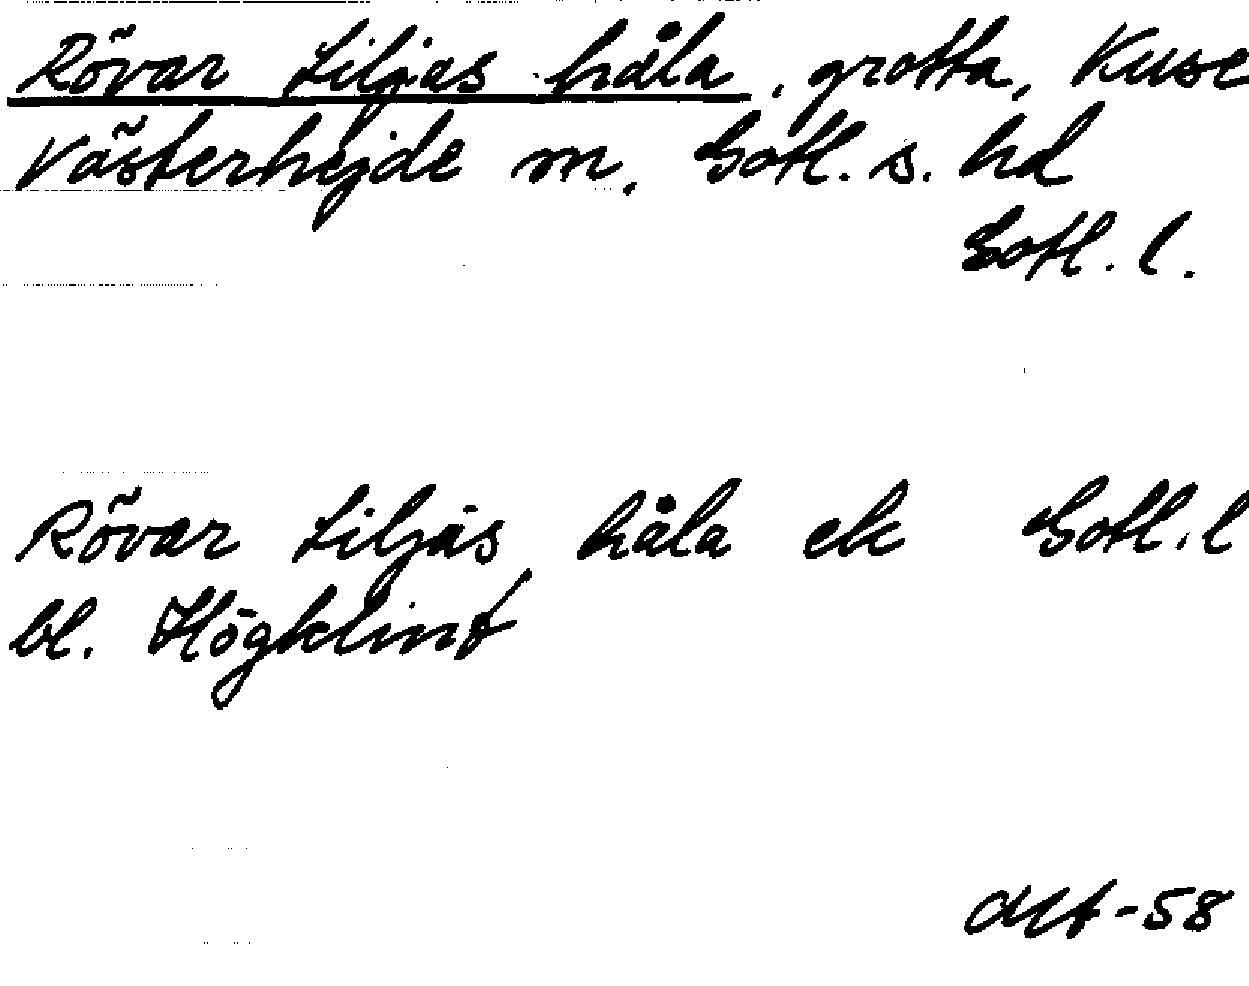 Rövar Liljas håla, grotta, Kuse
Västerhejde sn. Gotl. s. hd
Gotl. l.
Rövar Liljas håla ek Gotl. l
bl. Högklint
-58